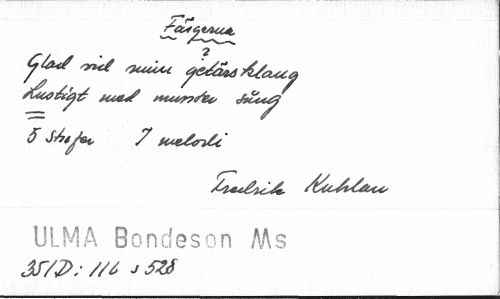 Färgerna
?
Glad vid min getärsklang
Lustigt med munter sång
5 strofer 7 melodi
Fredrik Kuhlau
ULMA Bondeson Ms
351D: 116 s 528